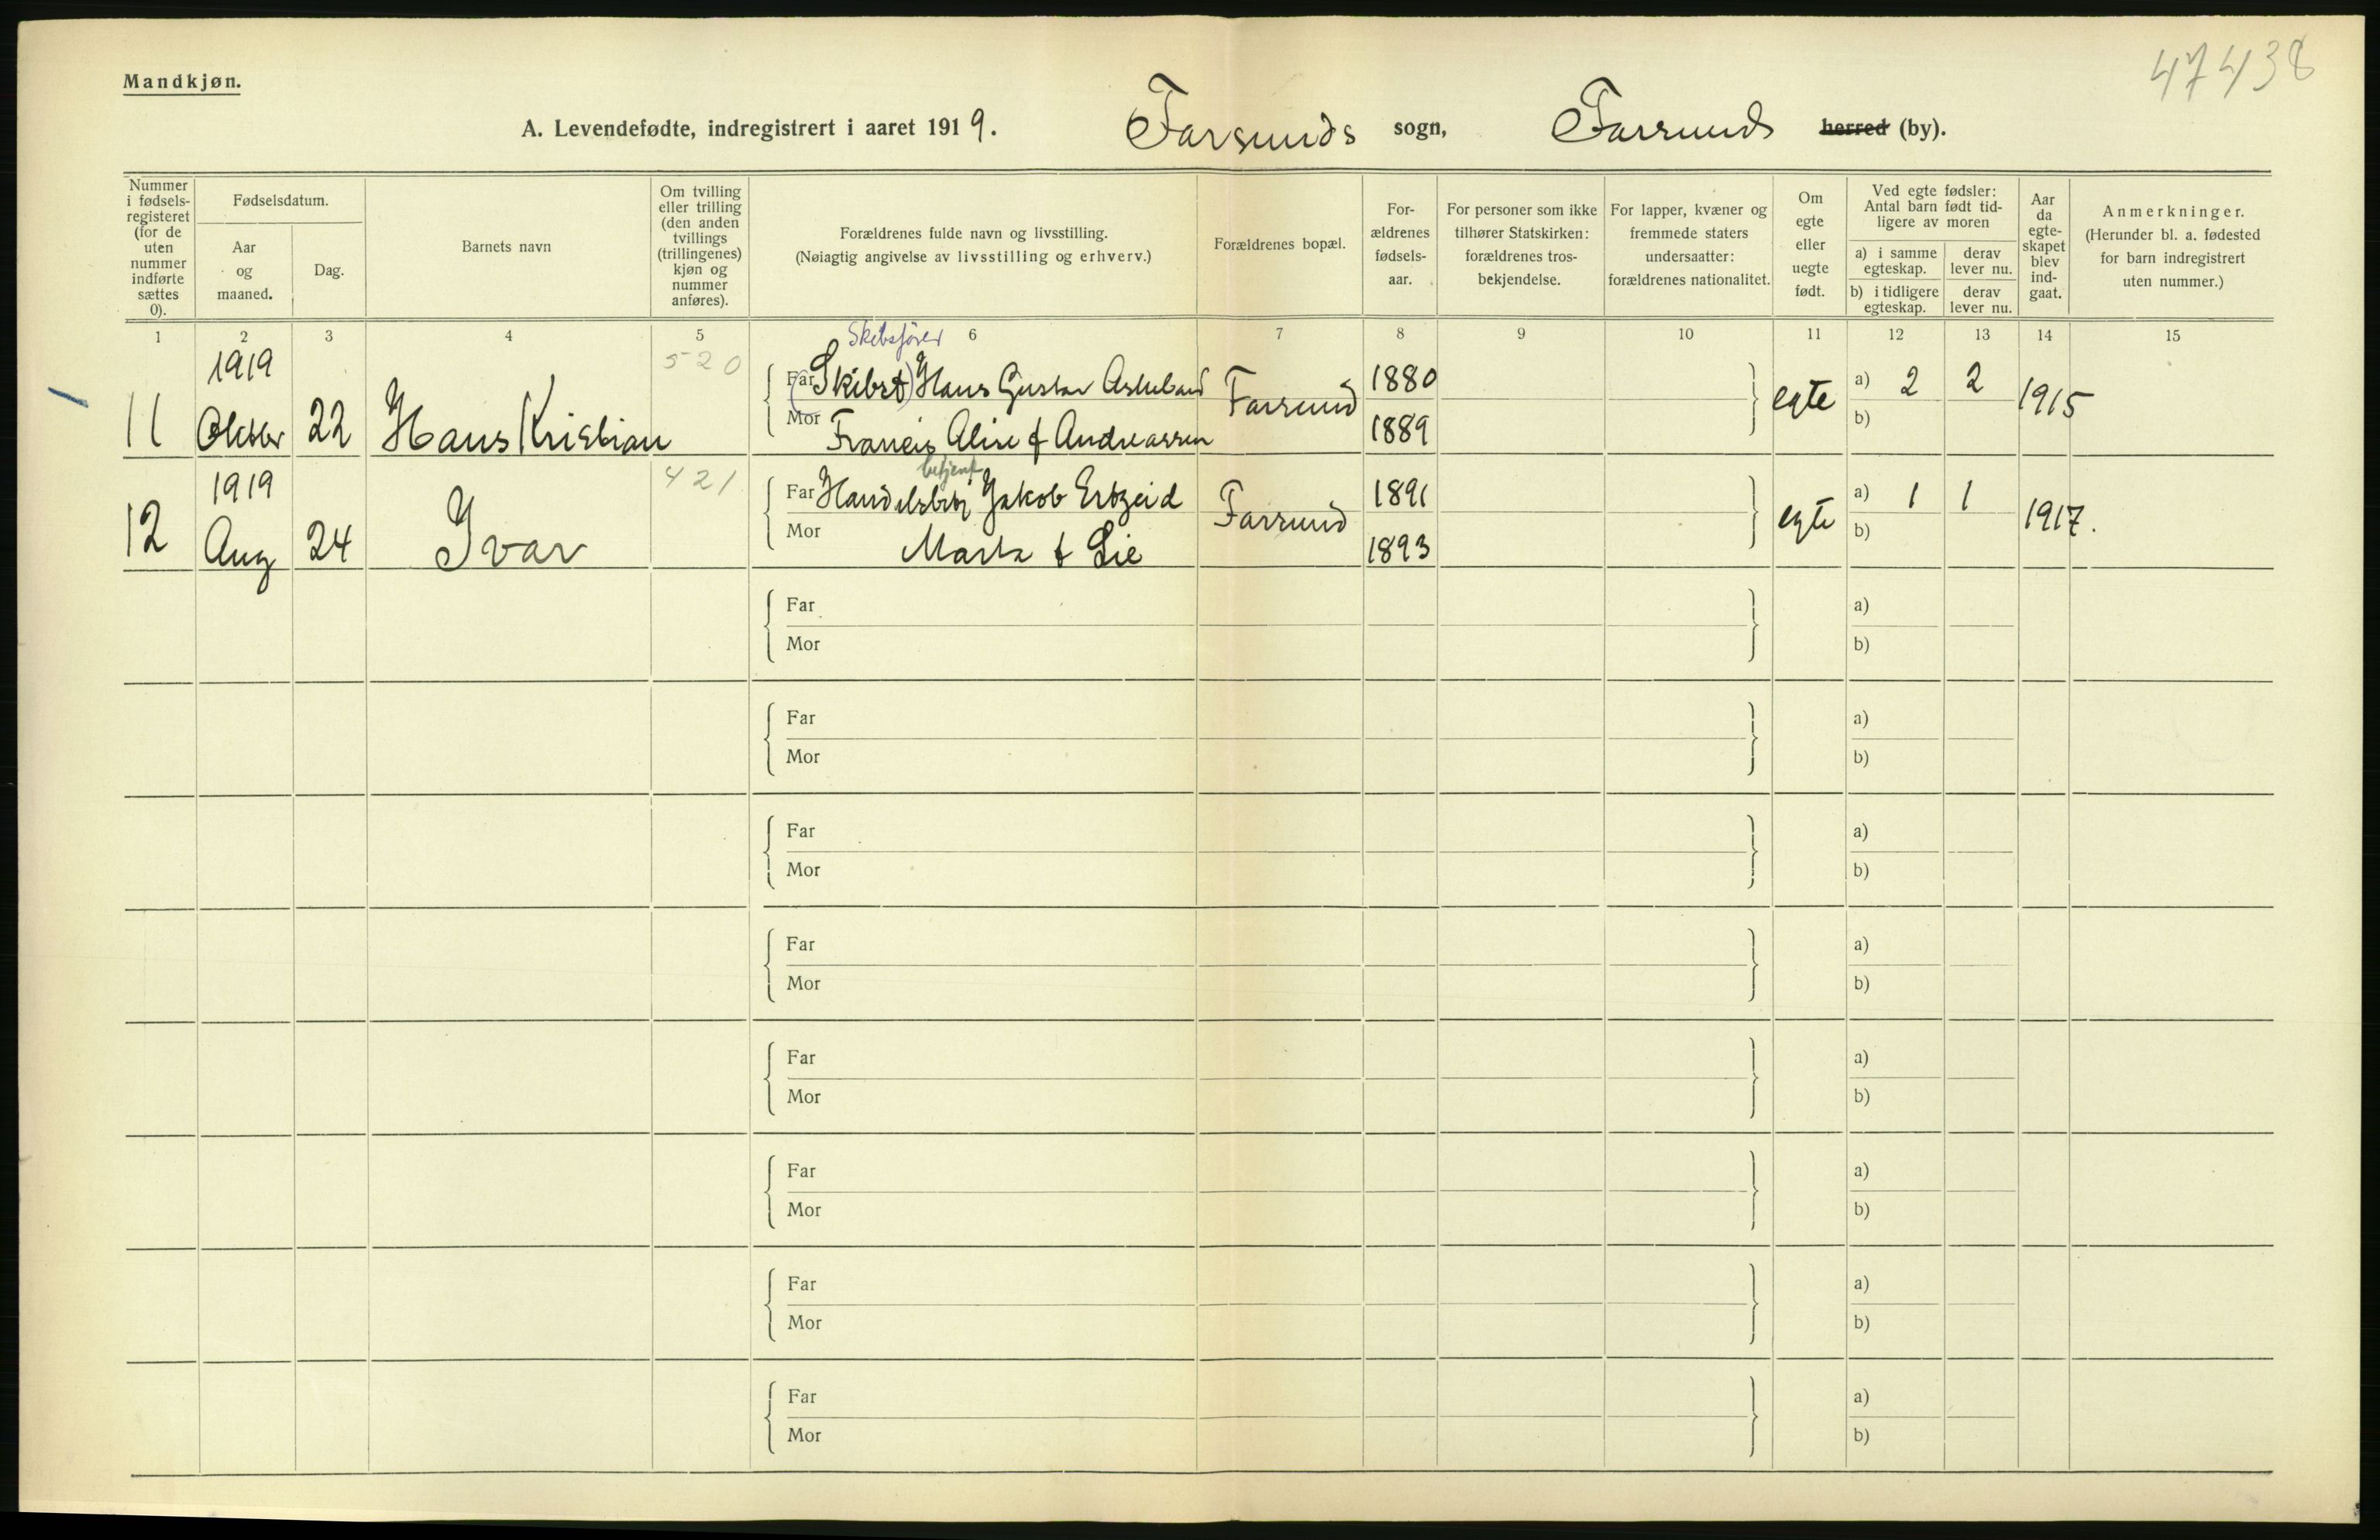 47438
Mandkjøn.
A. Levendefødte, indregistrert i aaret 1919. Farsunds sogn, Farsunds herred (by).
Nummer i fødsels-registeret (for de uten nummer indførte sættes 0).
Fødselsdatum.
Aar og maaned.
Dag.
Barnets navn
Om tvilling eller trilling (den anden tvillings (trillingenes) kjøn og nummer anføres).
Forældrenes fulde navn og livsstilling.
(Nøiagtig angivelse av livsstilling og erhverv.)
Forældrenes bopæl.
For-ældrenes fødsels-aar.
For personer som ikke tilhører Statskirken: forældrenes tros-bekjendelse.
For lapper, kvæner og fremmede staters undersaatter: forældrenes nationalitet.
Om egte eller uegte født.
Ved egte fødsler: Antal barn født tid-ligere av moren
a) i samme egteskap.
derav lever nu.
b) i tidligere egteskap.
derav lever nu.
Aar da egte-skapet blev ind-gaat.
Anmerkninger.
(Herunder bl. a. fødested for barn indregistrert uten nummer.)
1 2 3 4 5 6 7 8 9 10 11 12 13 14 15
Skibsfører
1919 520 Far (Skibsf) Hans Gustav 1880 a) 2 2
11 Oktbr 22 Hans Kristian Farsund egte 1915
Mor Francis Alise f Andreassen 1889 b)
betjent
1919 421 Far Handelsbetj Jakob 1891 a) 1 1
12 Aug 24 Ivar Farsund egte 1917.
Mor Marta f Lie 1893 b)
Far a)
Mor b)
Far a)
Mor b)
Far a)
Mor b)
Far a)
Mor b)
Far a)
Mor b)
Far a)
Mor b)
Far a)
Mor b)
Far a)
Mor b)